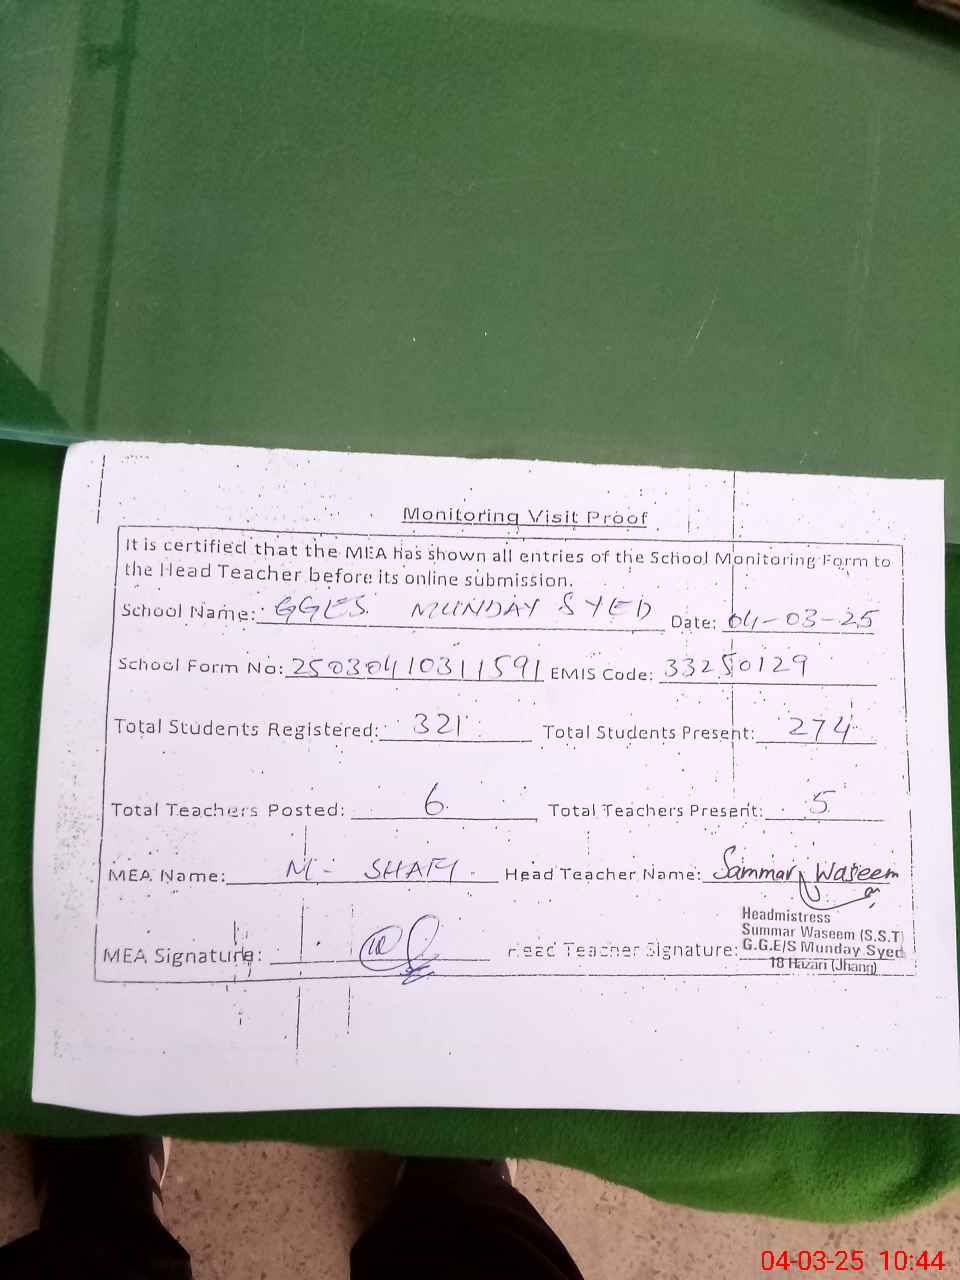 Monitoring Visit Proof
It is certified that the MEA has shown all entries of the School Monitoring Form to
the Head Teacher before its online submission.
School Name: GGES MUNDAY SYED Date: 04-03-25
School Form No: 25030410311591 EMIS Code: 33250129
Total Students Registered: 321 Total Students Present: 274
Total Teachers Posted: 6 Total Teachers Present: 5
MEA Name: M- SHAFI Head Teacher Name: Sammar Waseem
Headmistress
Summar Waseem (S.S.T)
MEA Signature: Head Teacher Signature: G.G.E/S Munday Syed
18 Hazari (Jhang)
04-03-25 10:44